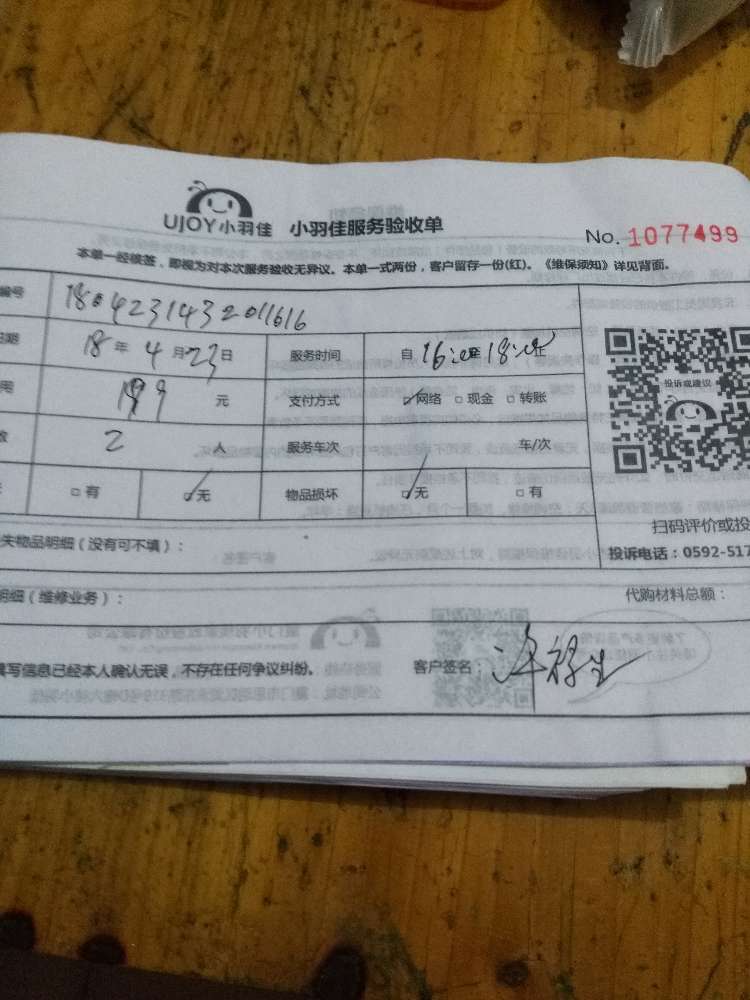 UJOY小羽佳 小羽佳服务验收单
No. 1077499
本单一经核签，即视为对本次服务验收无异议。本单一式两份，客户留存一份(红)。《维保须知》详见背面。
编号 1804231432011616
日期 18 年 4 月 23 日 服务时间 自 16:00至 18:00止
用 199 元 支付方式 ☑网络 □现金 □转账
数 2 人 服务车次 车/次
□有 ☑无 物品损坏 ☑无 □有
投诉或建议
扫码评价或投
失物品明细（没有可不填）：
投诉电话：0592-517
明细（维修业务）： 代购材料总额：
填写信息已经本人确认无误，不存在任何争议纠纷。 客户签名：